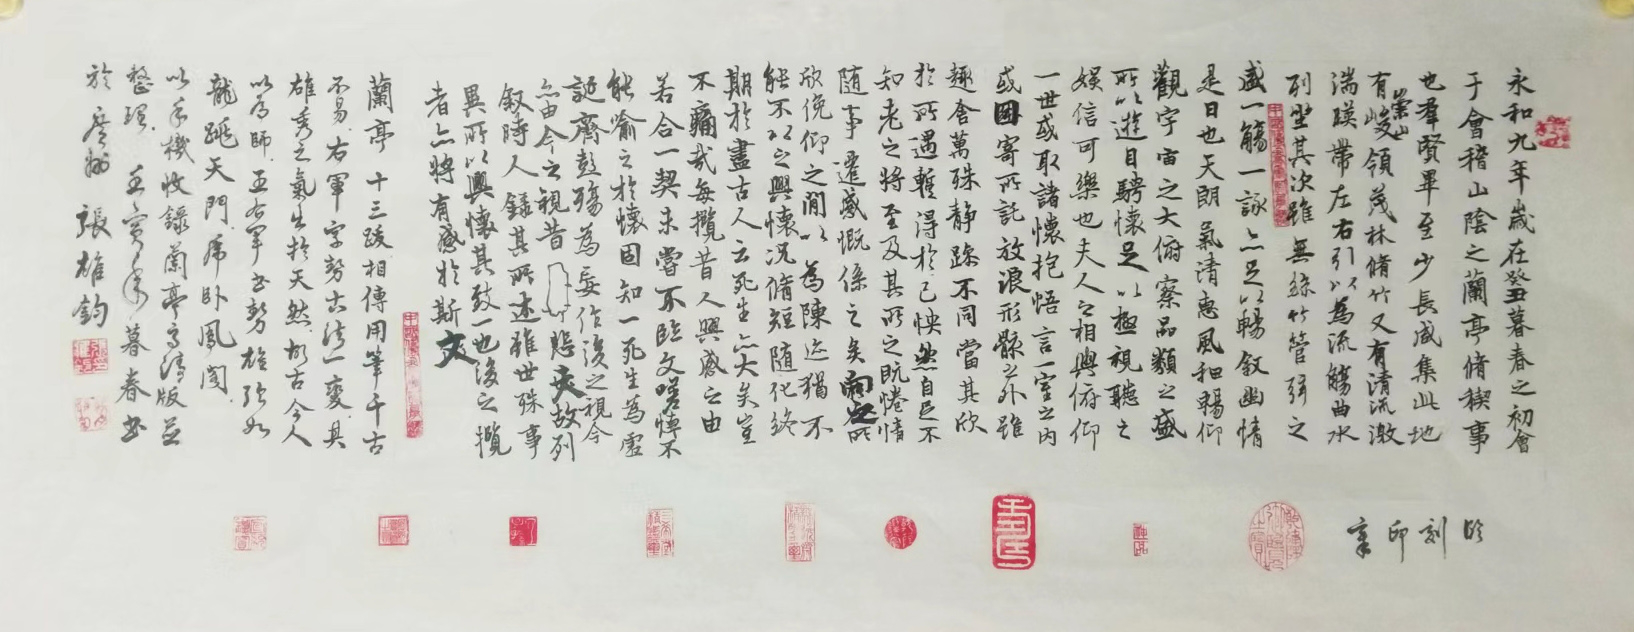 永和九年歲在癸丑暮春之初會
于會稽山陰之蘭亭脩稧事
也羣賢畢至少長咸集此地
有崇山峻領茂林脩竹又有清流激
湍暎帶左右引以為流觴曲水
列坐其次雖無絲竹管弦之
盛一觴一詠亦足以暢敘幽情
是日也天朗氣清惠風和暢仰
觀宇宙之大俯察品類之盛
所以遊目騁懷足以極視聽之
娛信可樂也夫人之相與俯仰
一世或取諸懷抱悟言一室之內
或因寄所託放浪形骸之外雖
趣舍萬殊靜躁不同當其欣
於所遇蹔得於己怏然自足不
知老之將至及其所之既惓情
隨事遷感慨係之矣向之所
欣俛仰之閒以為陳迹猶不
能不以之興懷況脩短隨化終
期於盡古人云死生亦大矣豈
不痛哉每攬昔人興感之由
若合一契未嘗不臨文嗟悼不
能喻之於懷固知一死生為虛
誕齊彭殤為妄作後之視今
亦由今之視昔悲夫故列
敘時人錄其所述雖世殊事
異所以興懷其致一也後之攬
者亦將有感於斯文
蘭亭十三跋相傳用筆千古
不易右軍字勢古法一變其
雄秀之氣生於天然故古今人
以為師王右軍書勢雄強如
龍跳天門虎臥鳳閣
以手機收錄蘭亭高清版並
整理
暮春書
於 張雄鈞
臨
刻
印
章